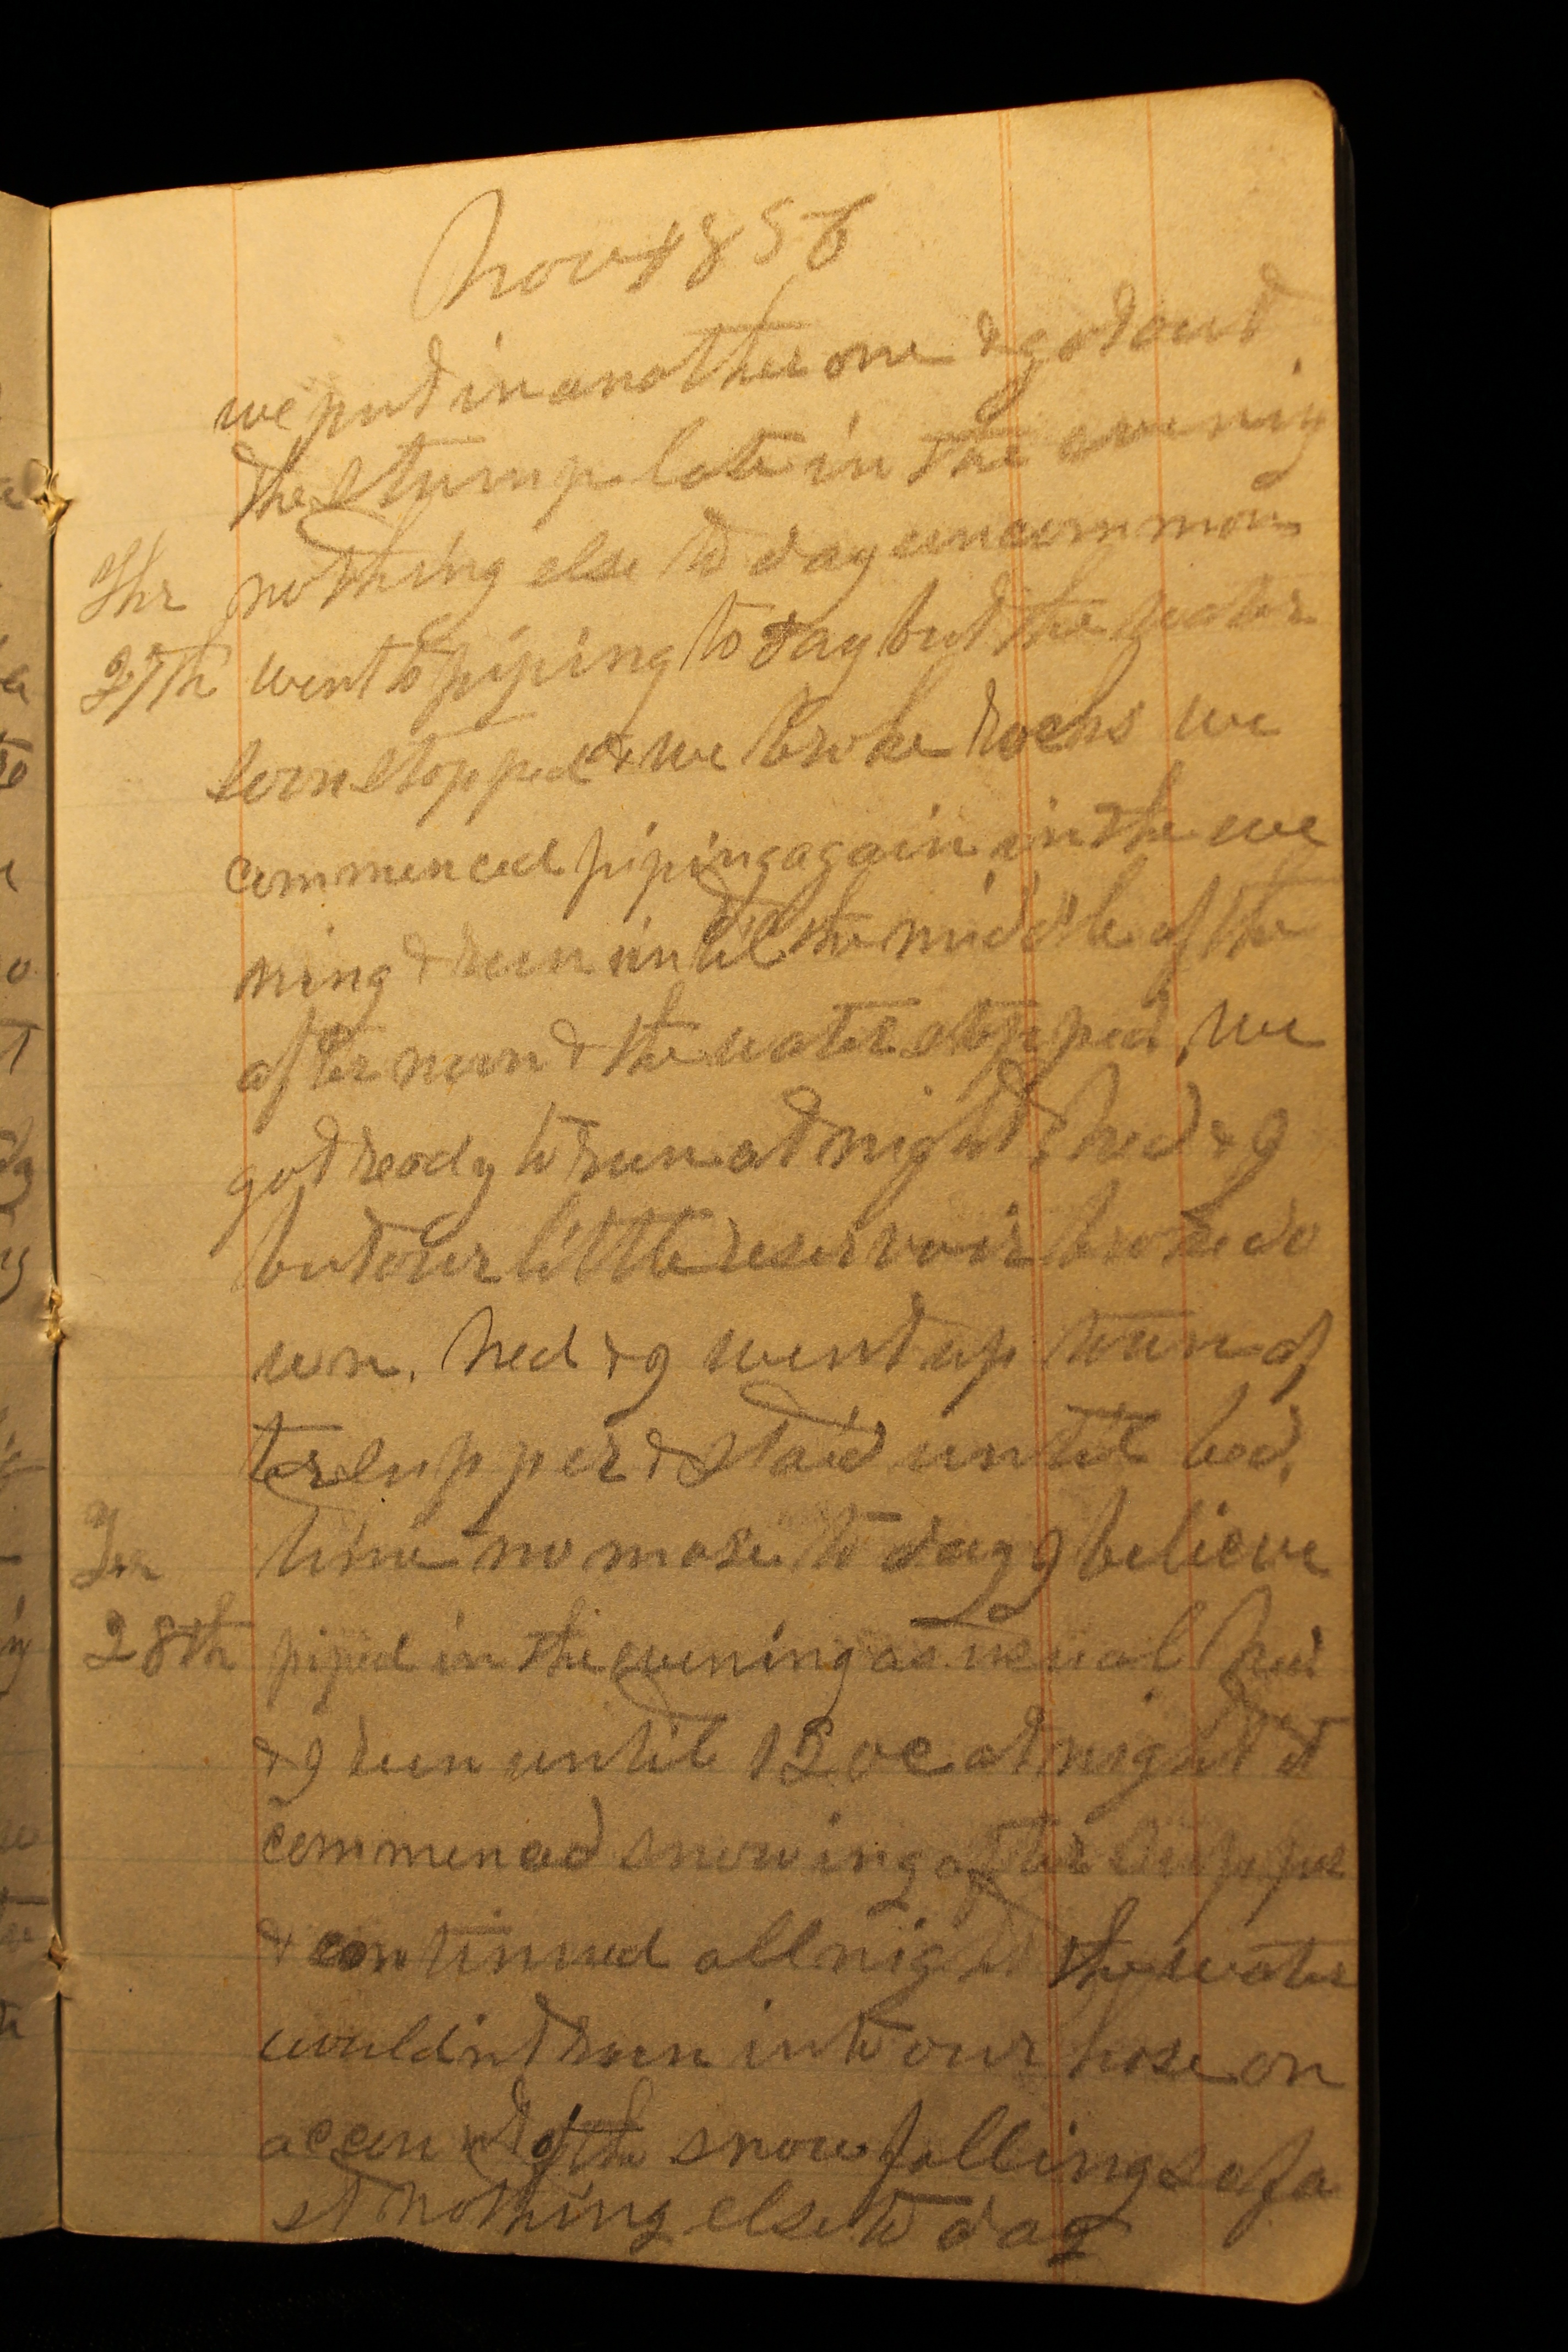 Nov 1856
we put in another one & got out
the stump late in the evening
Thr nothing else to day uncommon
27th went to piping to day but the water
soon stopped & we broke rocks we
commenced piping again in the eve
ning & run until the middle of the
after noon & the water stopped, we
got ready to run at night Ned & I
but our little reservoir broke do
wn. Ned & I went up town af
ter supper & staid until bed,
time no more to day I believe
28th piped in the evening as usual Ned
& I run until 12 oc at night it
commenced snowing after supper
& continued all night the water
would'nt run into our hose on
account of the snow falling so fa
st nothing else to day